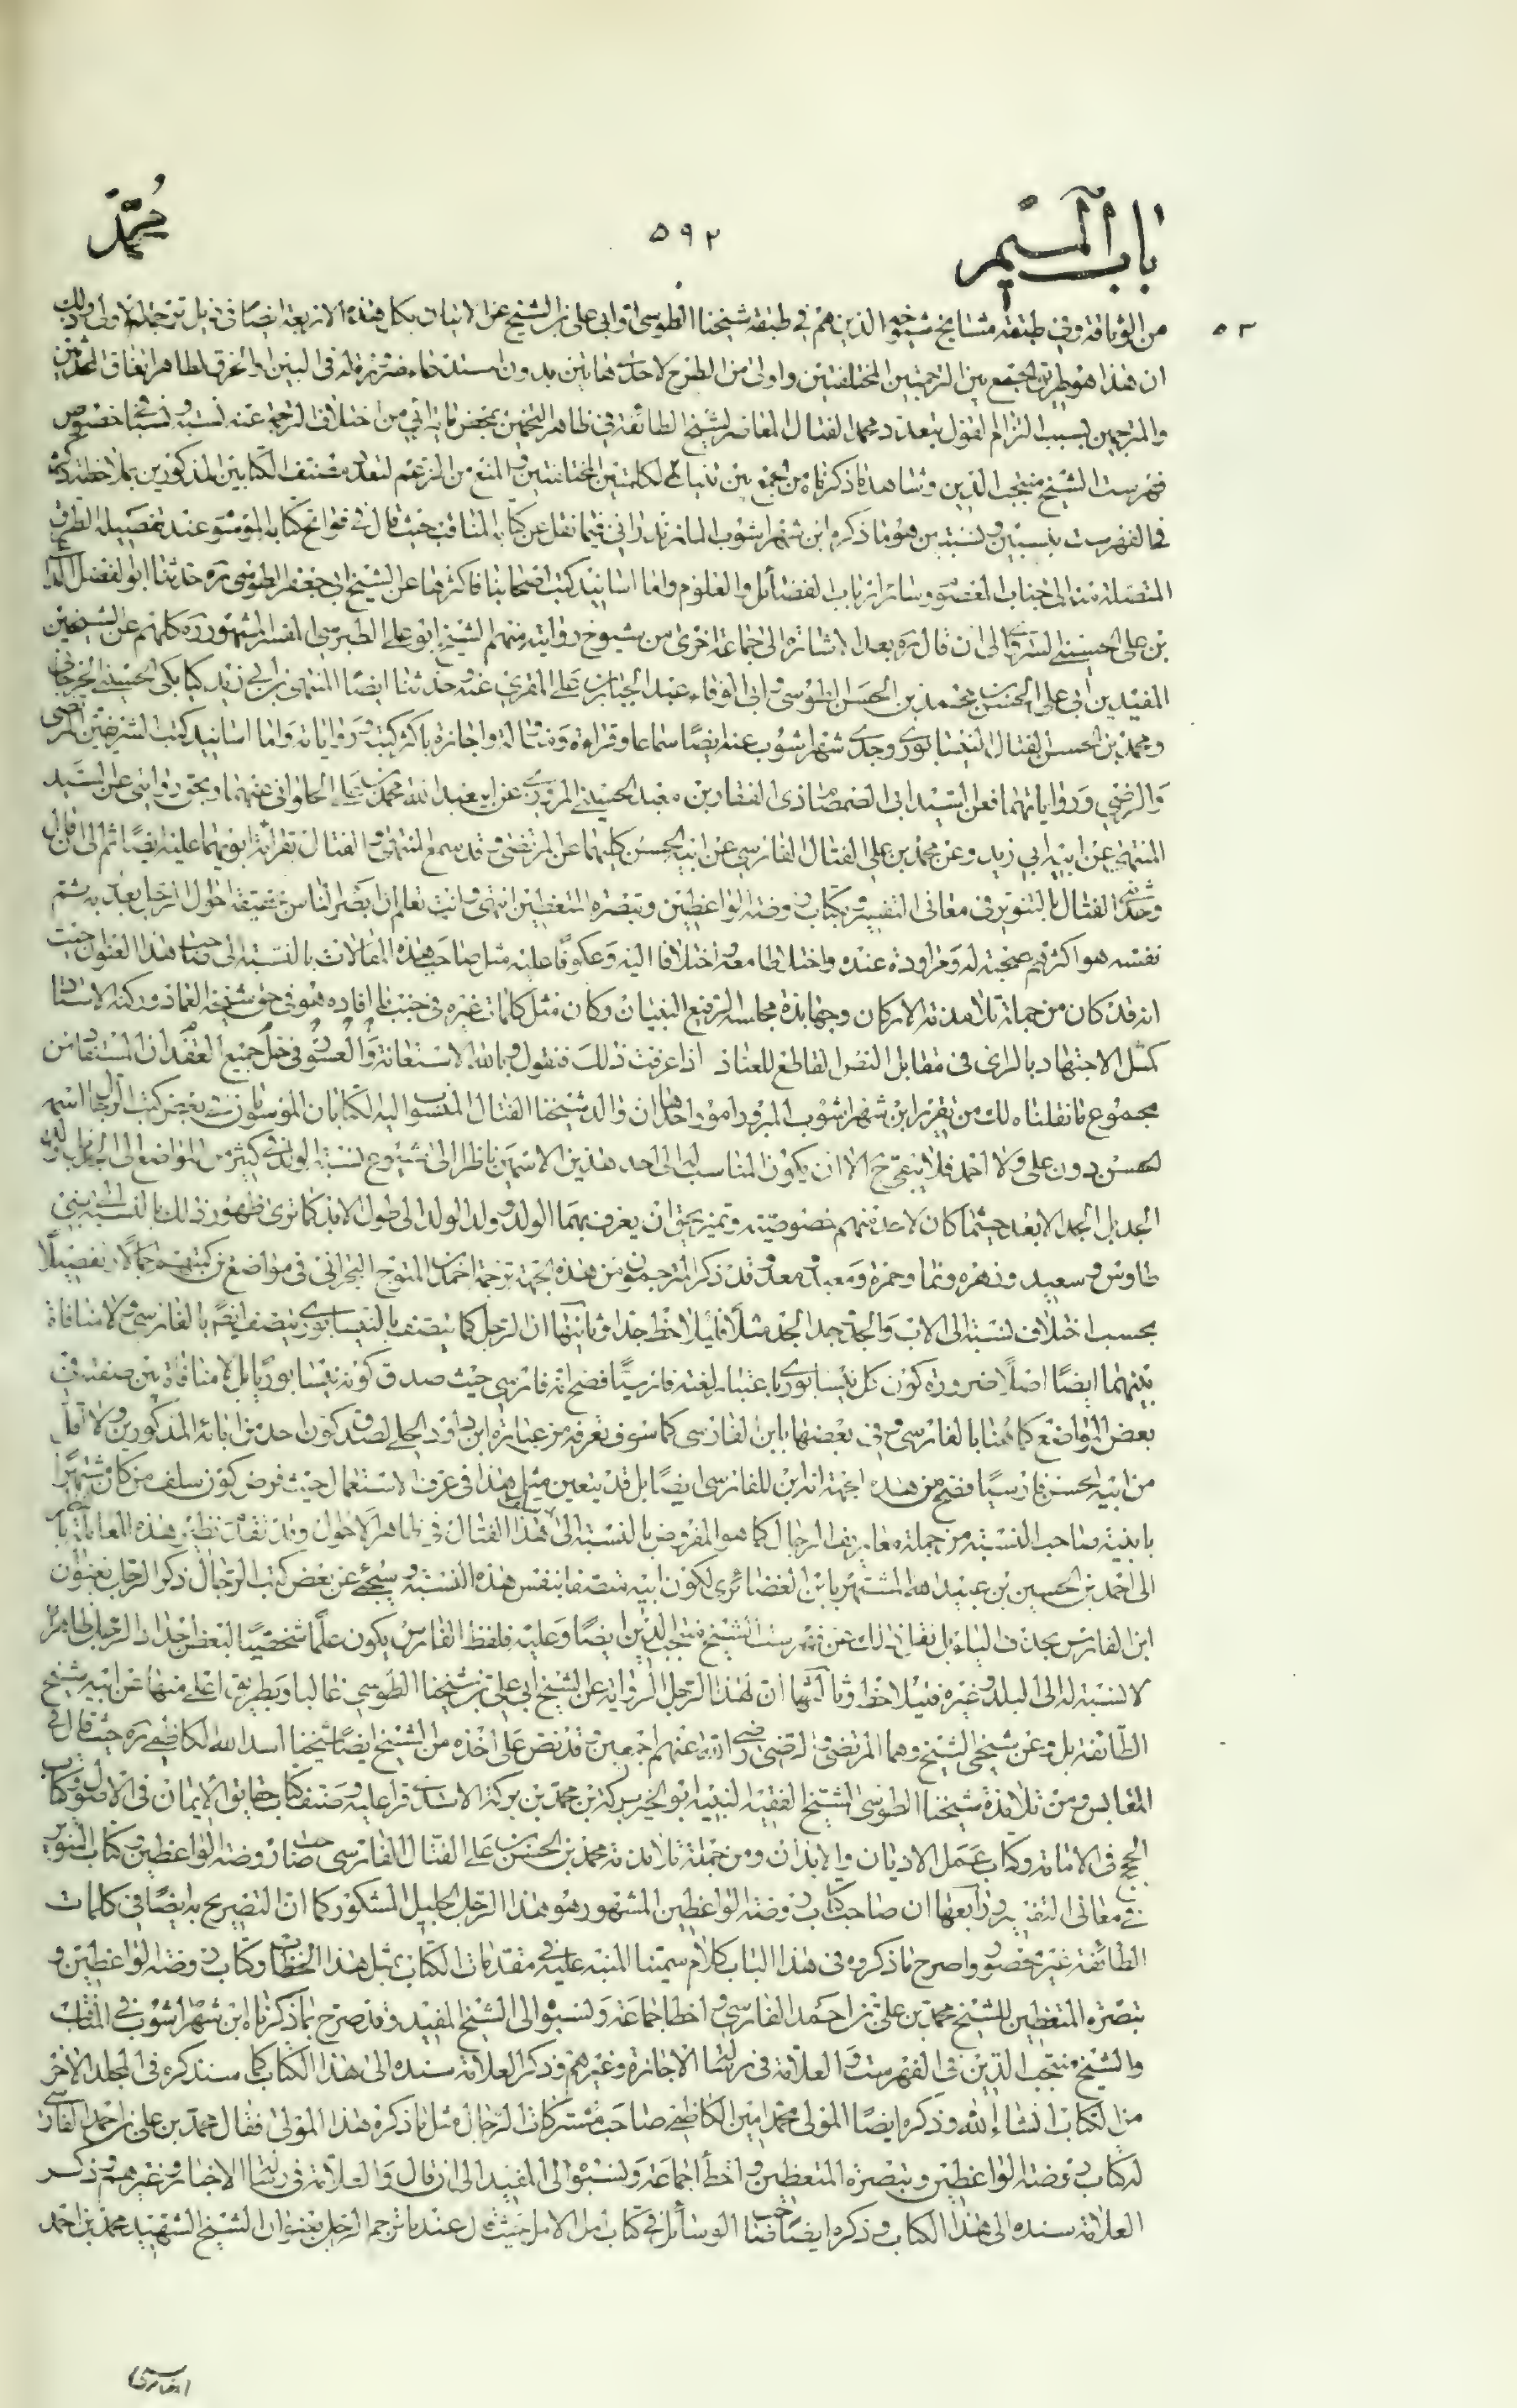 باب الميم
٥٩٢
محمد
٥٢
من الوثاقة وفي طبقة مشايخ شيوخه الذين هم في طبقة شيخنا الطوسي وابي علي بن الشيخ عن الاتيان بكل هذه الاربعة ايضا في ذيل ترجمة
ان هذا هو طريق الجمع بين الترجمتين المختلفتين واولى من الطرح لاحدى هاتين بدون مستند
والمترجمين بسبب التزام القول بتعدد محمد الفتال المعاصر لشيخ الطائفة في ظاهر التخمين بمحض ما تراءى من اختلاف الترجمة عنه نسبة ونسبا خصوص
فهرست الشيخ منتجب الدين وشاهد ما ذكرناه من الجمع بين الكلمتين المختلفتين والمنع من الزعم لتعدد مصنف الكتابين المذكورين بملاحظة ذكره
في الفهرست بنسبتين هو ما ذكره ابن شهراشوب المازندراني فيما نقل عن كتابه المناقب حيث قال في فواتح كتابه الموسوم عند تفصيله الطرق
المتصلة منه الى جناب المعصوم وسائر ارباب الفضائل والعلوم واما اسانيد كتب اصحابنا فاكثرها عن الشيخ ابي جعفر الطوسي ره حدثنا ابو الفضل الداعي
بن علي الحسيني السروي الى ان قال ره بعد الاشارة الى جماعة اخرى من شيوخ روايته منهم الشيخ ابو علي الطبرسي المفسر المشهور ره كلهم عن الشيخين
المفيدين ابي علي الحسن بن محمد بن الحسن الطوسي وابي الوفاء عبد الجبار بن علي المقري عنه وحدثنا ايضا المنتهى بن ابي زيد كيابكي الحسيني الجرجاني
ومحمد بن الحسن الفتال النيسابوري وجدي شهراشوب عنه ايضا سماعا وقراءة ومناولة واجازة باكثر كتبه ورواياته واما اسانيد كتب الشريفين المرتضى
والرضي ورواياتهما فعن السيد ابي الصمصام ذي الفقار بن معبد الحسيني المروزي عن ابي عبد الله محمد بن علي الحلواني عنهما وبحق روايتي عن السيد
المنتهى عن ابيه ابي زيد وعن محمد بن علي الفتال الفارسي عن ابيه الحسن كليهما عن المرتضى وقد سمع المنتهى والفتال بقراءة ابويهما عليه ايضا ثم الى ان قال
وحدثني الفتال بالتنوير في معاني التفسير وبكتاب روضة الواعظين وتبصرة المتعظين انتهى وانت تعلم ان ابصر الناس بحقيقة احوال الرجل بعد
نفسه هو اكثرهم صحبة له ومراودة عنده واختلاطا معه واختلافا اليه وعكوفا عليه مثل صاحب هذه المقالات بالنسبة الى صاحب هذا العنوان حيث
انه قد كان من جملة تلامذته الاركان وجهابذة مجالسه الرفيع البنيان وكان مثل كلمات غيره في جنب ما افاده هو في حق شيخه العماد وركنه الاستاد
كمثل الاجتهاد بالراي في مقابل النص القاطع للعناد اذا عرفت ذلك فنقول وبالله الاستعانة في حل جميع العقد ان المستفاد من
مجموع ما نقلناه لك من تقرير ابن شهراشوب المبرور امور احدها ان والد شيخنا الفتال المنسوب اليه الكتابان الموسومان بعض كتب الرجال اسمه
الحسن دون علي ولا احمد فلا يبقى ح الا ان يكون المناسب له الى احد هذين الاسمين ناظرا الى شيوع نسبة الولد في كثير من المواضع الى
الجد بل الجد الابعد حيثما كان لاحد منهم خصوصية وتميز يحق ان يعرف بهما الولد وولد الولد الى طول الابد كما ترى ظهور ذلك بالنسبة الى بني
طاوس وسعيد وزهره ونما وحمزة ومعية وقد ذكر المترجمون من هذه الجهة ترجمة احمد بن المتوج البحراني في مواضع من كتبهم اجمالا وتفصيلا
بحسب اختلاف نسبته الى الاب والجد وجد الجد مثلا فليلاحظ جدا وثانيها ان الرجل كما يتصف بالنيسابوري يتصف ايضا بالفارسي ولا منافاة
بينهما ايضا اصلا ضرورة كون كل نيسابوري باعتبار لغته فارسيا فصح انه فارسي حيث صدق كونه نيسابوريا بل لا منافاة بين صفته في
بعض المواضع كما هنا بالفارسي وفي بعضها بابن الفارسي كما سوف تعرفه من عبارة ابن داود الحلي لصدق كون احد من ابائه المذكورين ولا اقل
من ابيه الحسن فارسيا فصح من هذه الجهة انه ابن للفارسي ايضا بل قد يتعين مثل هذا في عرف الاستعمال حيث فرض كون سلف من كان مشتهرا
صاحب النسبة من جملة معاريف الرجال كما هو المفروض بالنسبة الى سلف هذا الفتال في ظاهر الاحوال وقد تقدم نظير هذه المعاملة
الى احمد بن الحسين بن عبيد الله المشتهر بابن الغضائري لكون ابيه متصفا بنفس هذه النسبة وسيجئ عن بعض كتب الرجال ذكر الرجل بعنوان
ابن الفارس بحذف الياء بل نقل ذلك عن فهرست الشيخ منتجب الدين ايضا وعليه فلفظ الفارس يكون علما شخصيا لبعض اجداد الرجل ظاهرا
لا نسبة له الى البلد وغيره فليلاحظ وثالثها ان لهذا الرجل الرواية عن الشيخ ابي علي بن شيخنا الطوسي غالبا وبطريق اعلى منها عن ابيه شيخ
الطائفة بل وعن شيخي الشيخ وهما المرتضى والرضي رضي الله عنهم اجمعين وقد نص على اخذه من الشيخ ايضا شيخنا اسد الله الكاظمي ره حيث قال في
المقابس ومن تلامذة شيخنا الطوسي الشيخ الفقيه النبيه ابو الخير بركة بن محمد بن بركة الاسدي قرا عليه وصنف كتاب حقايق الايمان في الاصول وكتاب
الحجج في الامامة وكتاب عمل الاديان والابدان ومن جملة تلامذته محمد بن الحسن بن علي الفتال الفارسي صاحب روضة الواعظين وكتاب التنوير
في معاني التفسير ورابعها ان صاحب كتاب روضة الواعظين المشهور هو هذا الرجل الجليل المشكور كما ان التصريح به ايضا في كلمات
الطائفة غير محصور واصرح ما ذكروه في هذا الباب كلام سمينا المنبه عليه في مقدمات الكتاب بمثل هذا الخطاب وكتاب روضة الواعظين و
تبصرة المتعظين للشيخ محمد بن علي بن احمد الفارسي واخطا جماعة ونسبوا الى الشيخ المفيد وقد صرح بما ذكرناه ابن شهراشوب في المناقب
والشيخ منتجب الدين في الفهرست والعلامة في رسالة الاجازة وغيرهم وذكر العلامة سنده الى هذا الكتاب كما سنذكره في المجلد الاخر
من الكتاب انشاء الله وذكره ايضا المولى محمد امين الكاظمي صاحب مشتركات الرجال مثل ما ذكره هذا المولى فقال محمد بن علي بن احمد الفارسي
له كتاب روضة الواعظين وتبصرة المتعظين واخطأ جماعة ونسبوا الى المفيد الى ان قال والعلامة في رسالة الاجازة وغيرهم وذكر
العلامة سنده الى هذا الكتاب وذكره ايضا صاحب الوسائل في كتاب امل الامل حيث قال عند ما ترجم الرجل بعنوان الشيخ الشهيد محمد بن احمد
الفارسي